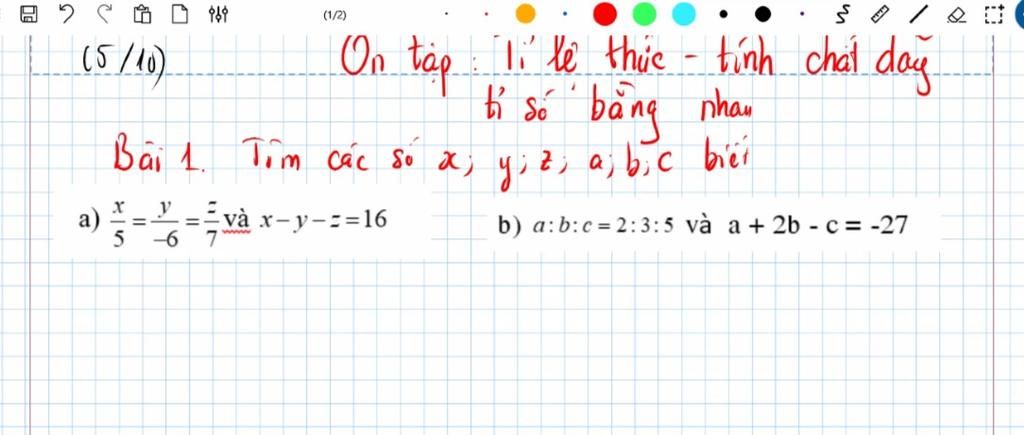 (1/2)
(5/10) Ôn tập : Tỉ lệ thức - tính chất dãy
tỉ số bằng nhau
Bài 1. Tìm các số x; y; z; a; b; c biết
a) x/5 = y/-6 = z/7 và x - y - z = 16 b) a : b : c = 2 : 3 : 5 và a + 2b - c = -27